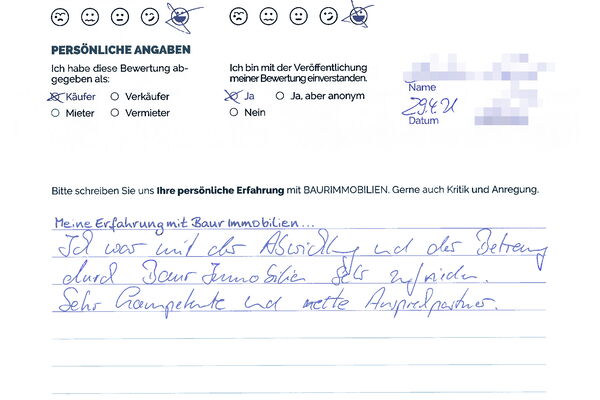 PERSÖNLICHE ANGABEN
Ich habe diese Bewertung ab-
gegeben als:
Käufer Verkäufer
Mieter Vermieter
Ich bin mit der Veröffentlichung
meiner Bewertung einverstanden.
Ja Ja, aber anonym
Nein
Name
29.4.21
Datum
Bitte schreiben Sie uns Ihre persönliche Erfahrung mit BAURIMMOBILIEN. Gerne auch Kritik und Anregung.
Meine Erfahrung mit Baur Immobilien...
Ich war mit der Abwicklung und der Betreuung
durch Baur Immobilien sehr zufrieden.
Sehr kompetente und nette Ansprechpartner.